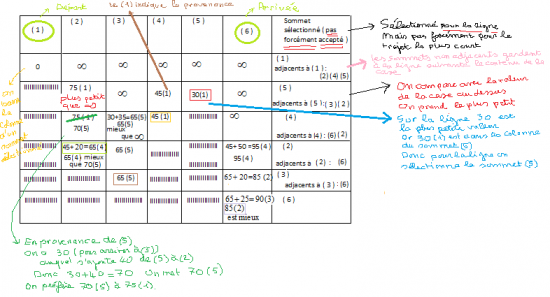 Départ
le (1) indique la provenance
Arrivée
(1) (2) (3) (4) (5) (6) Sommet sélectionné (pas forcément accepté)
0 ∞ ∞ ∞ ∞ ∞ (1)
adjacents à (1) :
(2)(4)(5)
75(1) ∞ 45(1) 30(1) ∞ (5)
plus petit
que ∞
adjacents à (5) : (3)(2)
75(1) 30+35=65(5) 45(1) ∞ (4)
70(5) 65(5)
mieux
que ∞
adjacents à (4) : (6)(2)
45+20=65(4) 65(5) 45+50=95(4) (2)
65(4) mieux 95(4) adjacents à (2) : (6)
que 70(5)
65(5) 65+20=85(2) (3)
adjacents à (3) : (6)
65+25=90(3) (6)
85(2)
est mieux
Sélectionné pour la ligne
Mais pas forcément pour le
trajet le plus court
Les sommets non adjacents gardent
à la ligne suivante le contenu de la
case
On compare avec la valeur
de la case au dessus
On prend la plus petit
Sur la ligne 30 est
la plus petite valeur
Or 30(1) est dans la colonne
du sommet (5)
Donc pour la ligne on
sélectionne le sommet (5)
En provenance de (5)
On a 30 (pour arriver à (5))
auquel s'ajoute 40 de (5) à (2)
Donc 30+40=70 On met 70(5)
On préfère 70(5) à 75(1).